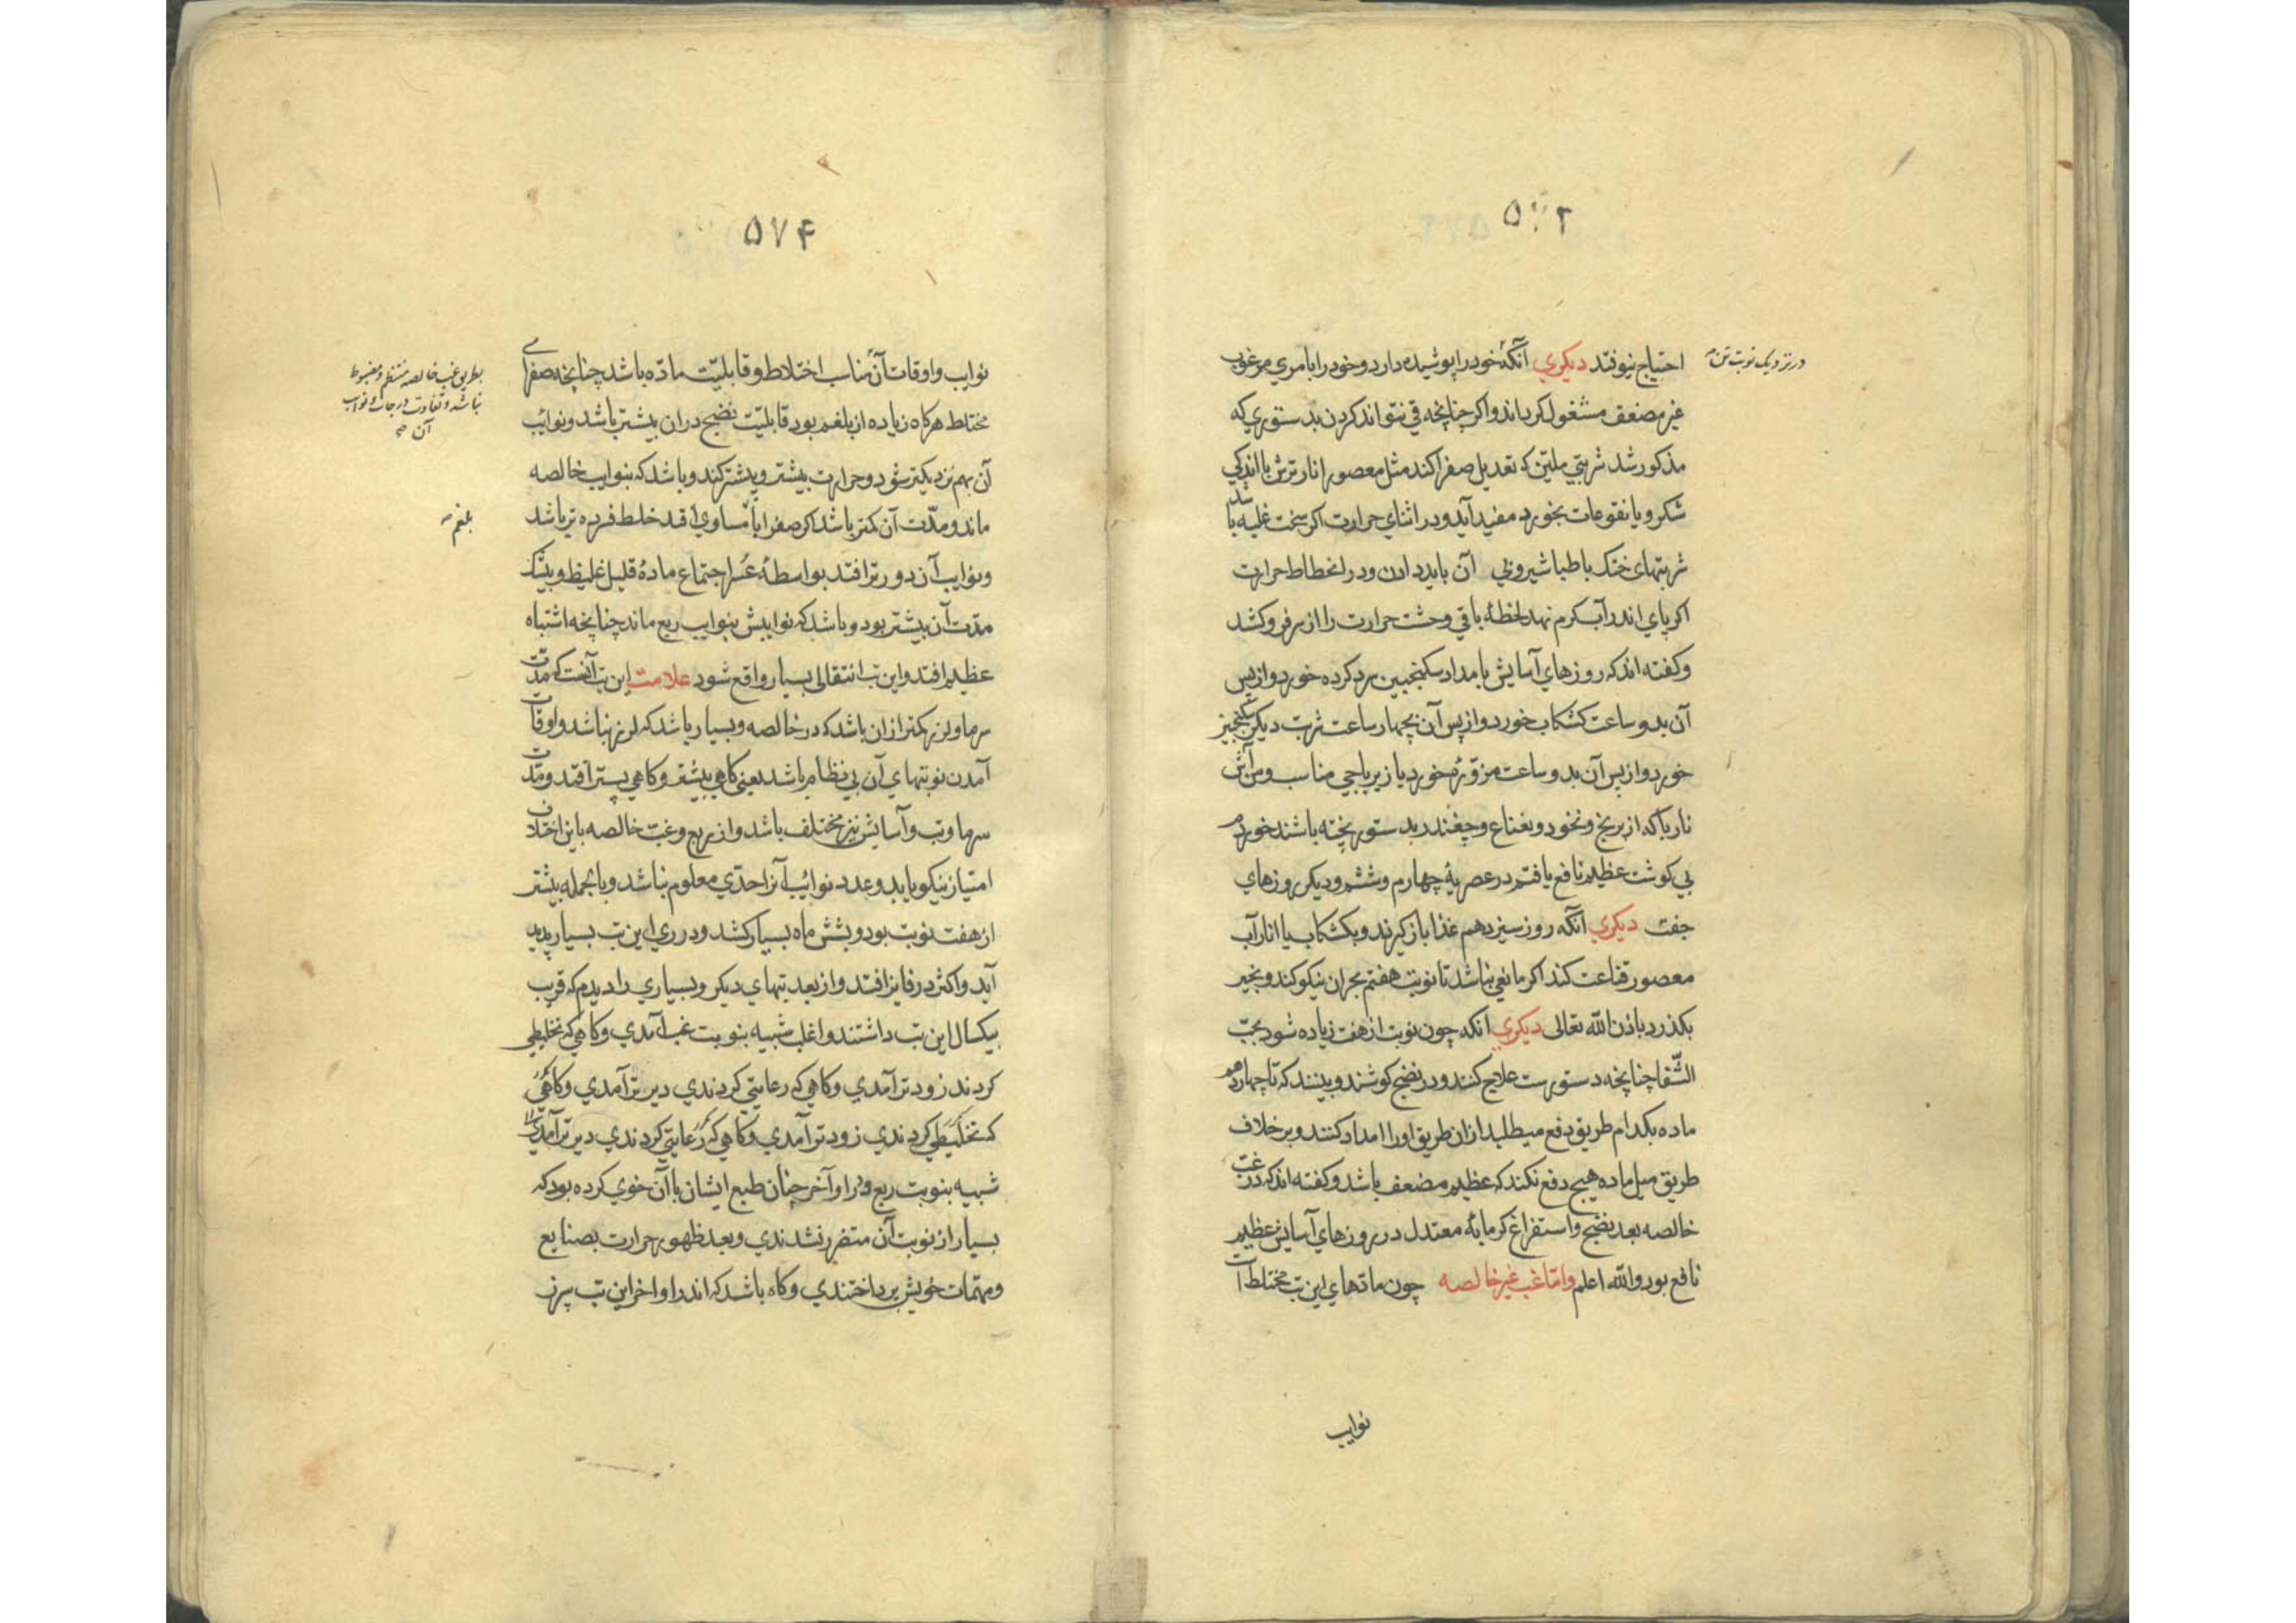 احتیاج نیوفتد دیکری آنکه خود را پوشیده دارد و خود را بامری مرغوب
در نزدیک نوبت تن
غیر مضعف مشغول کرداند و اکر چنانچه قی نتواند کردن بدستوری که
مذکور شد شربتی ملیّن که تعدیل صفرا کند مثل معصور انار ترش با اندکی
شکر و یا نقوعات بخورد مفید آید و در اثنای حرارت اکر سخت غلبه باشد
شربتهای خنک با طباشیر و آن باید دادن و در انحطاط حرارت
اکر پای اندر آب کرم نهد لحظهٔ باقی وحشت حرارت را از سر فرو کشد
و کفته اند که روزهای آسایش بامداد سکنجبین سرد کرده خورد و از پس
آن بدو ساعت کشکاب خورد و از پس آن بچهار ساعت شربت دیکر
خورد و از پس آن بدو ساعت مزوّرهٔ خورد یا زیرباجی مناسب و من آش
نار با که از برنج و نخود و نعناع و چغندر بدستور پخته باشند خوردم
بی کوشت عظیم نافع یافتم در عصریهٔ چهارم و ششم و دیکر روزهای
جفت دیکری آنکه روز سیزدهم غذا باز کیرند و بکشکاب یا انار آب
معصور قناعت کند اکر مانعی نباشد تا نوبت هفتم بحران نیکو کند و بخیر
بکذرد باذن الله تعالی دیکری آنکه چون نوبت از هفت زیاده شود بحبّ
الشّفا چنانچه دستورست علاج کنند و در نضج کوشند و ببینند که تا چهاردهم
ماده بکدام طریق دفع میطلبد ازان طریق اورا امداد کنند و بر خلاف
طریق میل ماده هیچ دفع نکنند که عظیم مضعف باشد و کفته اند که در غبّ
خالصه بعد نضج و استفراغ کرمابهٔ معتدل در روزهای آسایش عظیم
نافع بود والله اعلم و امّا غب غیر خالصه چون مادّهای این تب مختلط است
نوایب
۵۷۴
نوایب و اوقات آن مناسب اختلاط و قابلیّت مادّه باشد چنانچه صفرای
بطریق غب خالصه منتظم و مضبوط
نباشد و تفاوت درجات و نوایب
آن
مختلط هرکاه زیاده از بلغم بود قابلیّت نضج دران بیشتر باشد و نوایب
آن بهم نزدیکتر شود و حرارت بیشتر و پیشتر کند و باشد که بنوایب خالصه
ماند و مدّت آن کمتر باشد اکر صفرا با مساوی افتد خلط فسرده تر باشد
بلغم
و نوایب آن دورتر افتد بواسطهٔ عُسر اجتماع مادهٔ قلیل غلیظ و بیشک
مدّت آن بیشتر بود و باشد که نوایبش بنوایب ربع ماند چنانچه اشتباه
عظیم افتد و این تب انتقالی بسیار واقع شود علامت این تب آنست که مدّت
سرما و لرز کمتر ازان باشد که در خالصه و بسیار باشد که لرز نباشد و اوقات
آمدن نوبتهای آن بی نظام باشد یعنی کاهی پیشتر و کاهی پستر افتد و مدّت
سرما و تب و آسایش نیز مختلف باشد و از ربع و غب خالصه باین اختلاف
امتیاز نیکو یابد و عدد نوایب آنرا حدّی معلوم نباشد و بالجمله بیشتر
از هفت نوبت بود و بشش ماه بسیار کشد و در ری این تب بسیار پدید
آید و اکثر در فایز افتد و از بعد تبهای دیکر و بسیاری را دیدم که قریب
بیکسال این تب داشتند و اغلب شبیه بنوبت غب آمدی و کاهی که تخلیطی
کردند زودتر آمدی و کاهی که رعایتی کردندی دیرتر آمدی و کاهی
که تخلیطی کردندی زودتر آمدی و کاهی که رعایتی کردندی دیرتر آمدی
شبیه بنوبت ربع و در اواخر چنان طبع ایشان با آن خوی کرده بود که
بسیار از نوبت آن متضرر نشدندی و بعد ظهور حرارت بصنایع
و مهمّات خویش پرداختندی و کاه باشد که اندر اواخر این تب سپرز